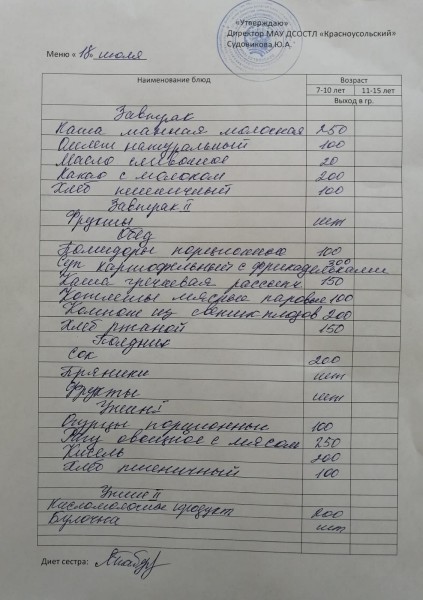 «Утверждаю»
Директор МАУ ДСОСТЛ «Красноусольский»
Судовикова Ю.А.
Меню « 18 » июля
Наименование блюд Возраст
7-10 лет 11-15 лет
Выход в гр.
Завтрак
Каша манная молочная 250
Омлет натуральный 100
Масло сливочное 20
Какао с молоком 200
Хлеб пшеничный 100
Завтрак II
Фрукты шт
Обед
Помидоры порционно 100
Суп картофельный с фрикадельками 300
Каша гречневая рассыпч 150
Котлеты мясные паровые 100
Компот из свежих плодов 200
Хлеб ржаной 150
Полдник
Сок 200
Пряники шт
Фрукты шт
Ужин I
Огурцы порционные 100
Рагу овощное с мясом 250
Кисель 200
Хлеб пшеничный 100
Ужин II
Кисломолочные продукт 200
Булочка шт
Диет сестра: